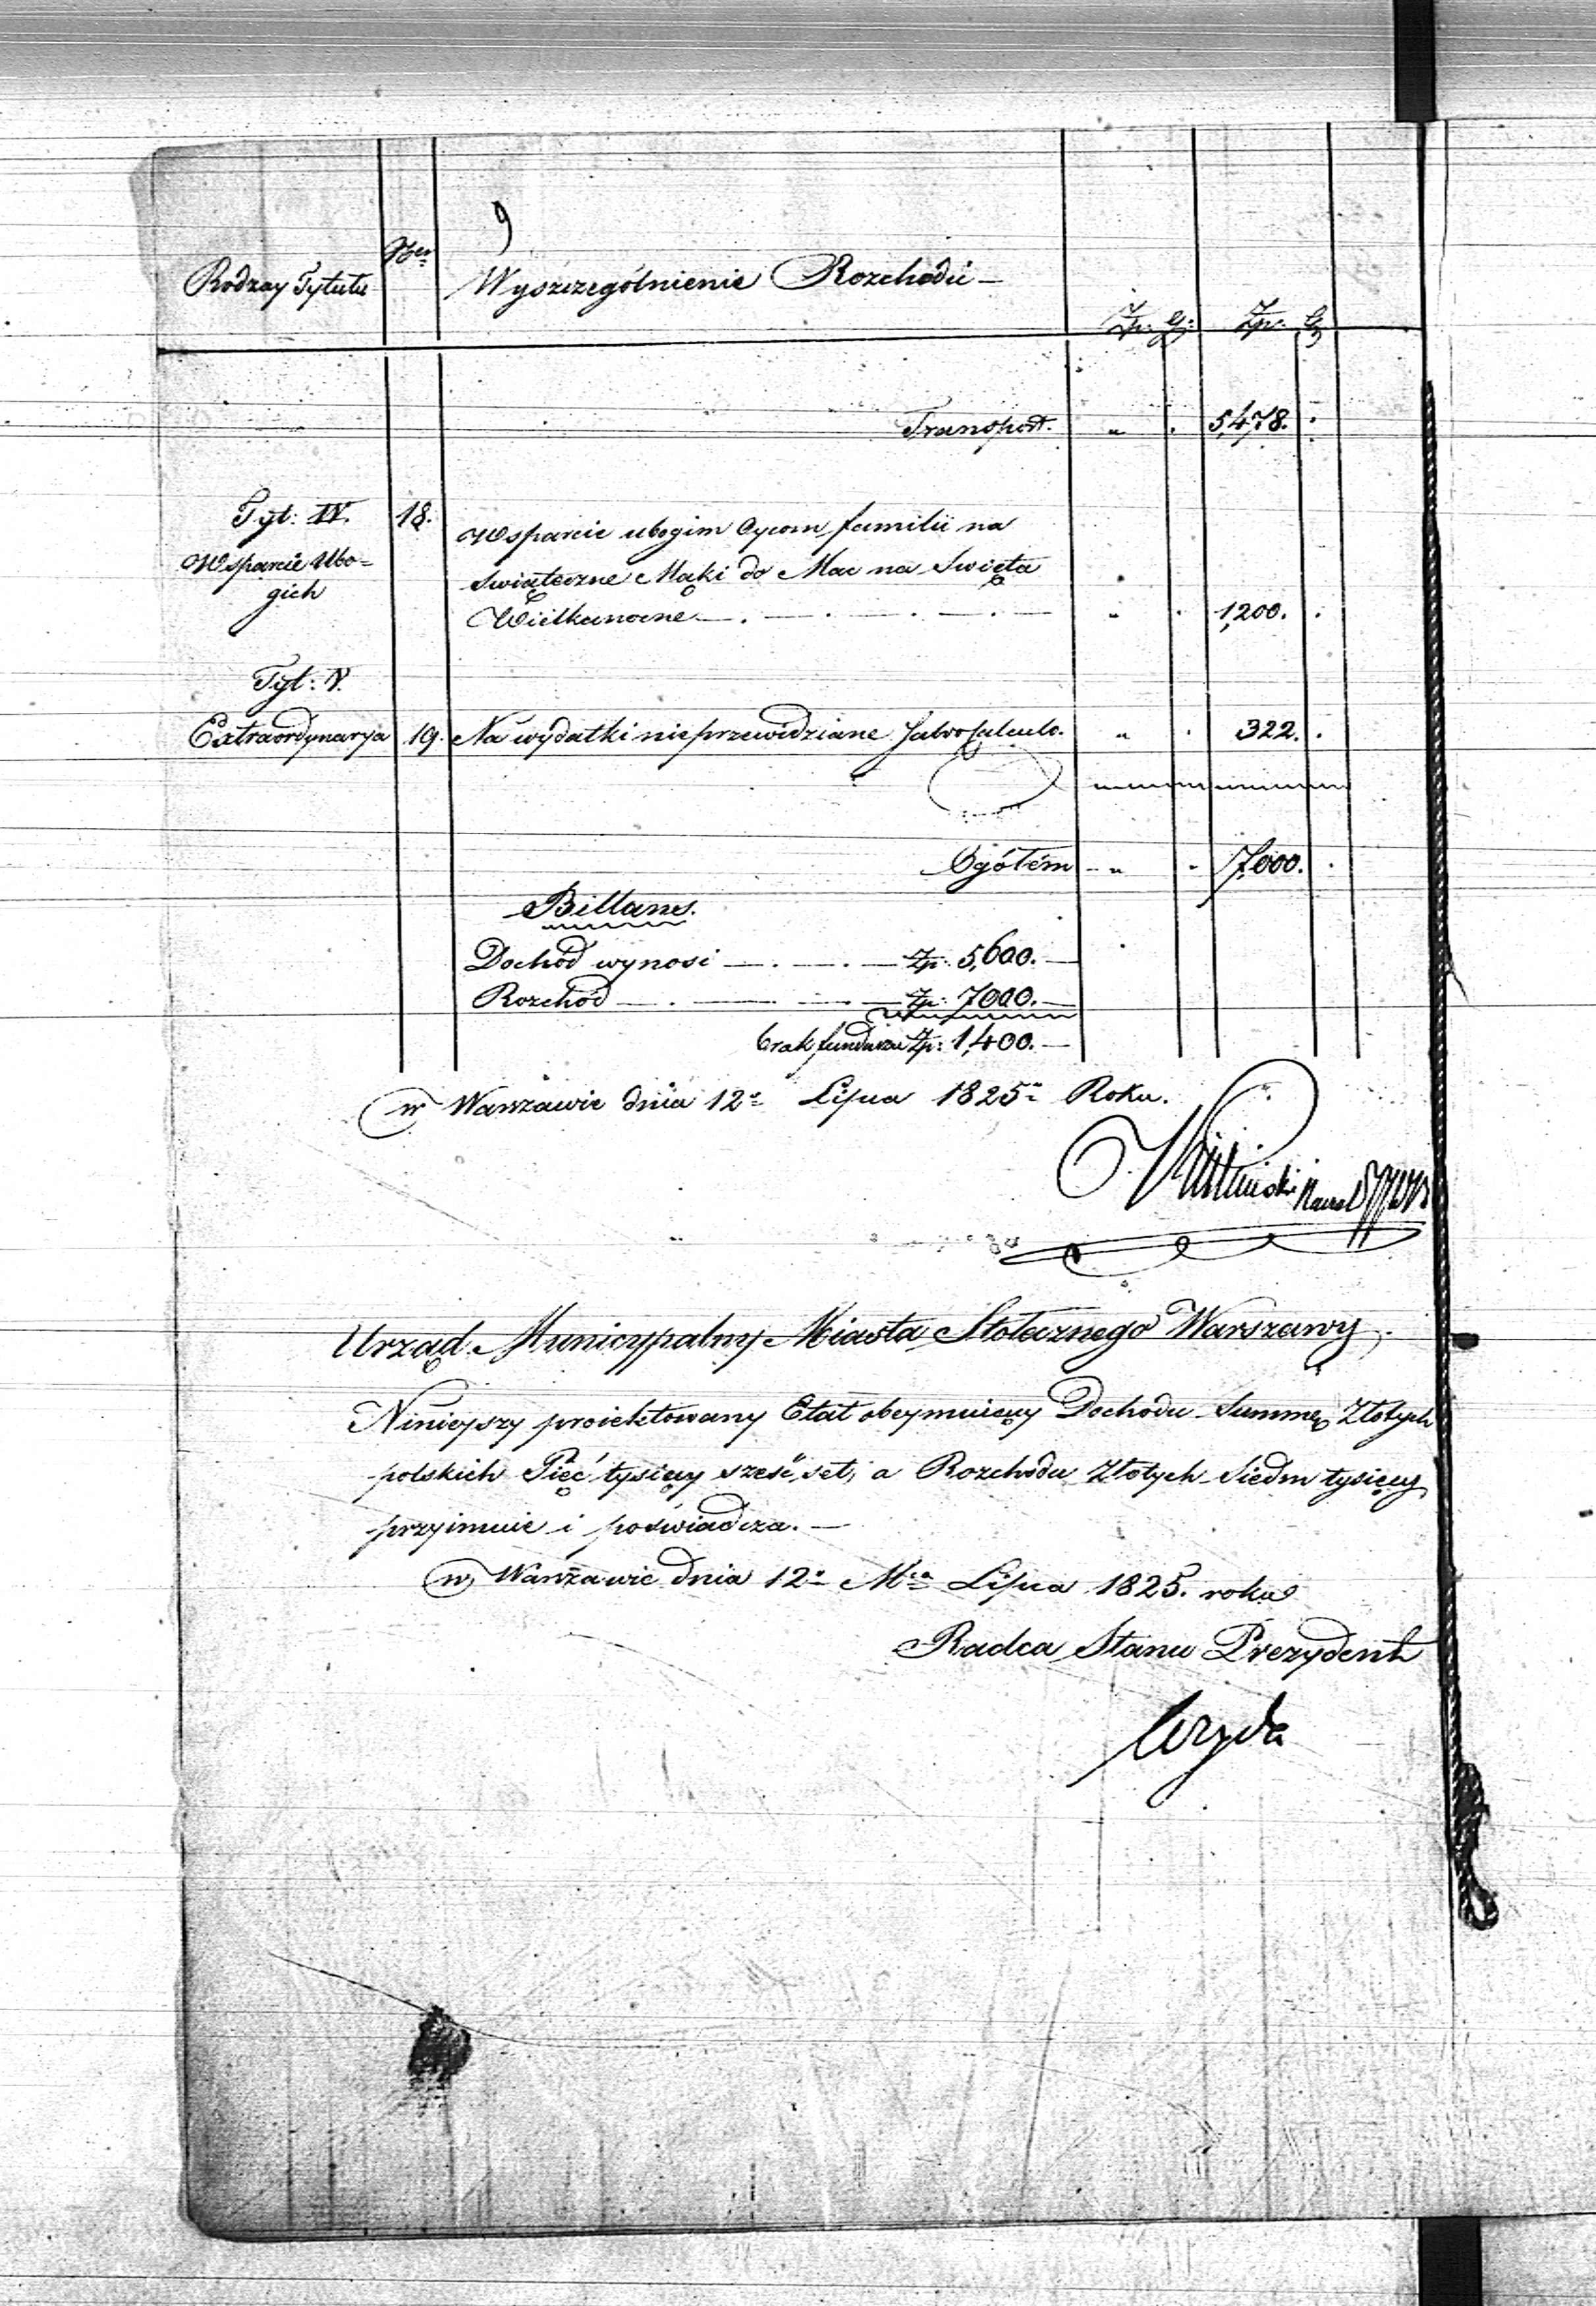 9
Rodzay Tytułu Ner Wyszczególnienie Rozchodu —
Zp: G: Zp: G:
Transport. „ . 5,478. .
Tyt: IV. 18. Wsparcie ubogim Oycom familii na
Wsparcie Ubo= świąteczne Mąki do Mac na Swięta
gich Wielkanocne „ . 1,200. .
Tyt: V.
Extraordynarya 19. Na wydatki nieprzewidziane Salvo Calculo. „ . 322. .
Ogółem „ . 7,000. .
Billans.
Dochód wynosi — . — . — Zp: 5,600. —
Rozchód — . — . — Zp: 7000. —
brak funduszu Zp: 1,400. —
w Warszawie dnia 12o Lipca 1825o Roku.
Urząd Municypalny Miasta Stołecznego Warszawy.
Ninieyszy proiektowany Etat obeymuiący Dochodu Summę Złotych
polskich Pięć tysięcy sześć set, a Rozchodu Złotych Siedm tysięcy
przyimuie i poświadcza. —
w Warszawie dnia 12o Mca Lipca 1825. roku
Radca Stanu Prezydent